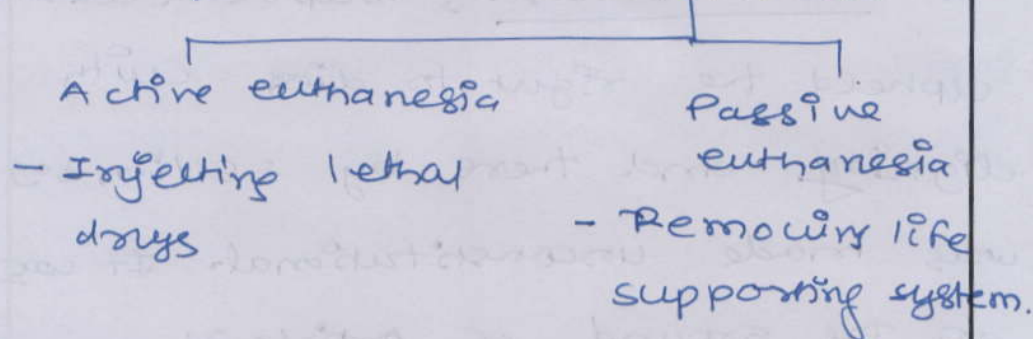 Active euthanesia
- Injecting lethal
drugs
Passive
euthanesia
- Removing life
supporting system.